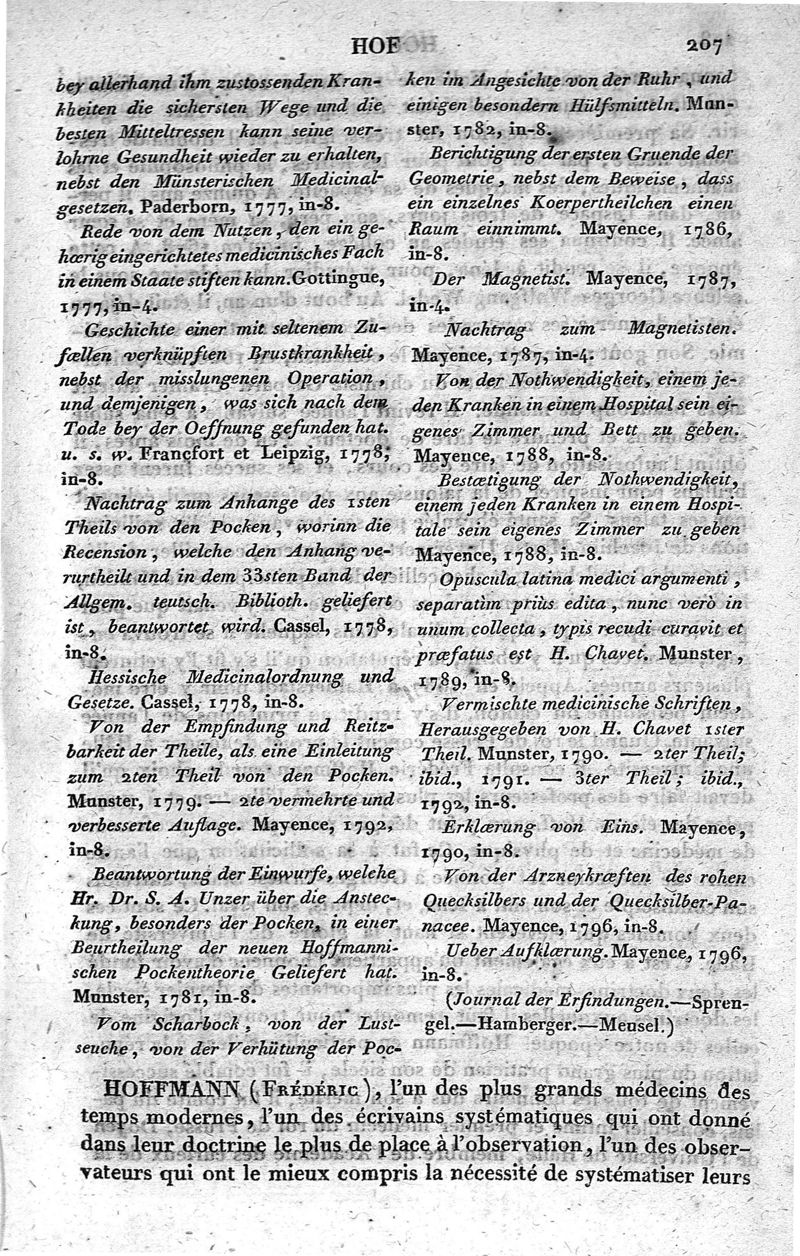 HOF
207
bey allerhand ihm zustossenden Kran-
kheiten die sichersten Wege und die
besten Mitteltressen kann seine ver-
lohrne Gesundheit wieder zu erhalten,
nebst den Münsterischen Medicinal-
gesetzen. Paderborn, 1777, in-8.
Rede von dem Nutzen, den ein ge-
hœrig eingerichtetes medicinisches Fach
in einem Staate stiften kann. Gottingue,
1777, in-4.
Geschichte einer mit seltenem Zu-
fœllen verknüpften Brustkrankheit,
nebst der misslungenen Operation,
und demjenigen, was sich nach dem
Tode bey der Oeffnung gefunden hat.
u. s. w. Francfort et Leipzig, 1778,
in-8.
Nachtrag zum Anhange des 1sten
Theils von den Pocken, worinn die
Recension, welche den Anhang ve-
rurtheilt und in dem 33sten Band der
Allgem. teutsch. Biblioth. geliefert
ist, beantwortet wird. Cassel, 1778,
in-8.
Hessische Medicinalordnung und
Gesetze. Cassel, 1778, in-8.
Von der Empfindung und Reitz-
barkeit der Theile, als eine Einleitung
zum 2ten Theil von den Pocken.
Munster, 1779. — 2te vermehrte und
verbesserte Auflage. Mayence, 1792,
in-8.
Beantwortung der Einwurfe, welche
Hr. Dr. S. A. Unzer über die Anstec-
kung, besonders der Pocken, in einer
Beurtheilung der neuen Hoffmanni-
schen Pockentheorie Geliefert hat.
Munster, 1781, in-8.
Vom Scharbock, von der Lust-
seuche, von der Verhütung der Poc-
ken im Angesichte von der Ruhr, und
einigen besondern Hülfsmitteln. Mun-
ster, 1782, in-8.
Berichtigung der ersten Gruende der
Geometrie, nebst dem Beweise, dass
ein einzelnes Koerpertheilchen einen
Raum einnimmt. Mayence, 1786,
in-8.
Der Magnetist. Mayence, 1787,
in-4.
Nachtrag zum Magnetisten.
Mayence, 1787, in-4.
Von der Nothwendigkeit, einem je-
den Kranken in einem Hospital sein ei-
genes Zimmer und Bett zu geben.
Mayence, 1788, in-8.
Bestœtigung der Nothwendigkeit,
einem jeden Kranken in einem Hospi-
tale sein eigenes Zimmer zu geben
Mayence, 1788, in-8.
Opuscula latina medici argumenti,
separatìm priùs edita, nunc verò in
unum collecta, typis recudi curavit et
præfatus est H. Chavet. Munster,
1789, in-8.
Vermischte medicinische Schriften,
Herausgegeben von H. Chavet 1ster
Theil. Munster, 1790. — 2ter Theil;
ibid., 1791. — 3ter Theil; ibid.,
1792, in-8.
Erklœrung von Eins. Mayence,
1790, in-8.
Von der Arzneykrœften des rohen
Quecksilbers und der Quecksilber-Pa-
nacee. Mayence, 1796, in-8.
Ueber Aufklœrung. Mayence, 1796,
in-8.
(Journal der Erfindungen.—Spren-
gel.—Hamberger.—Meusel.)
HOFFMANN (FRÉDÉRIC), l'un des plus grands médecins des
temps modernes, l'un des écrivains systématiques qui ont donné
dans leur doctrine le plus de place à l'observation, l'un des obser-
vateurs qui ont le mieux compris la nécessité de systématiser leurs